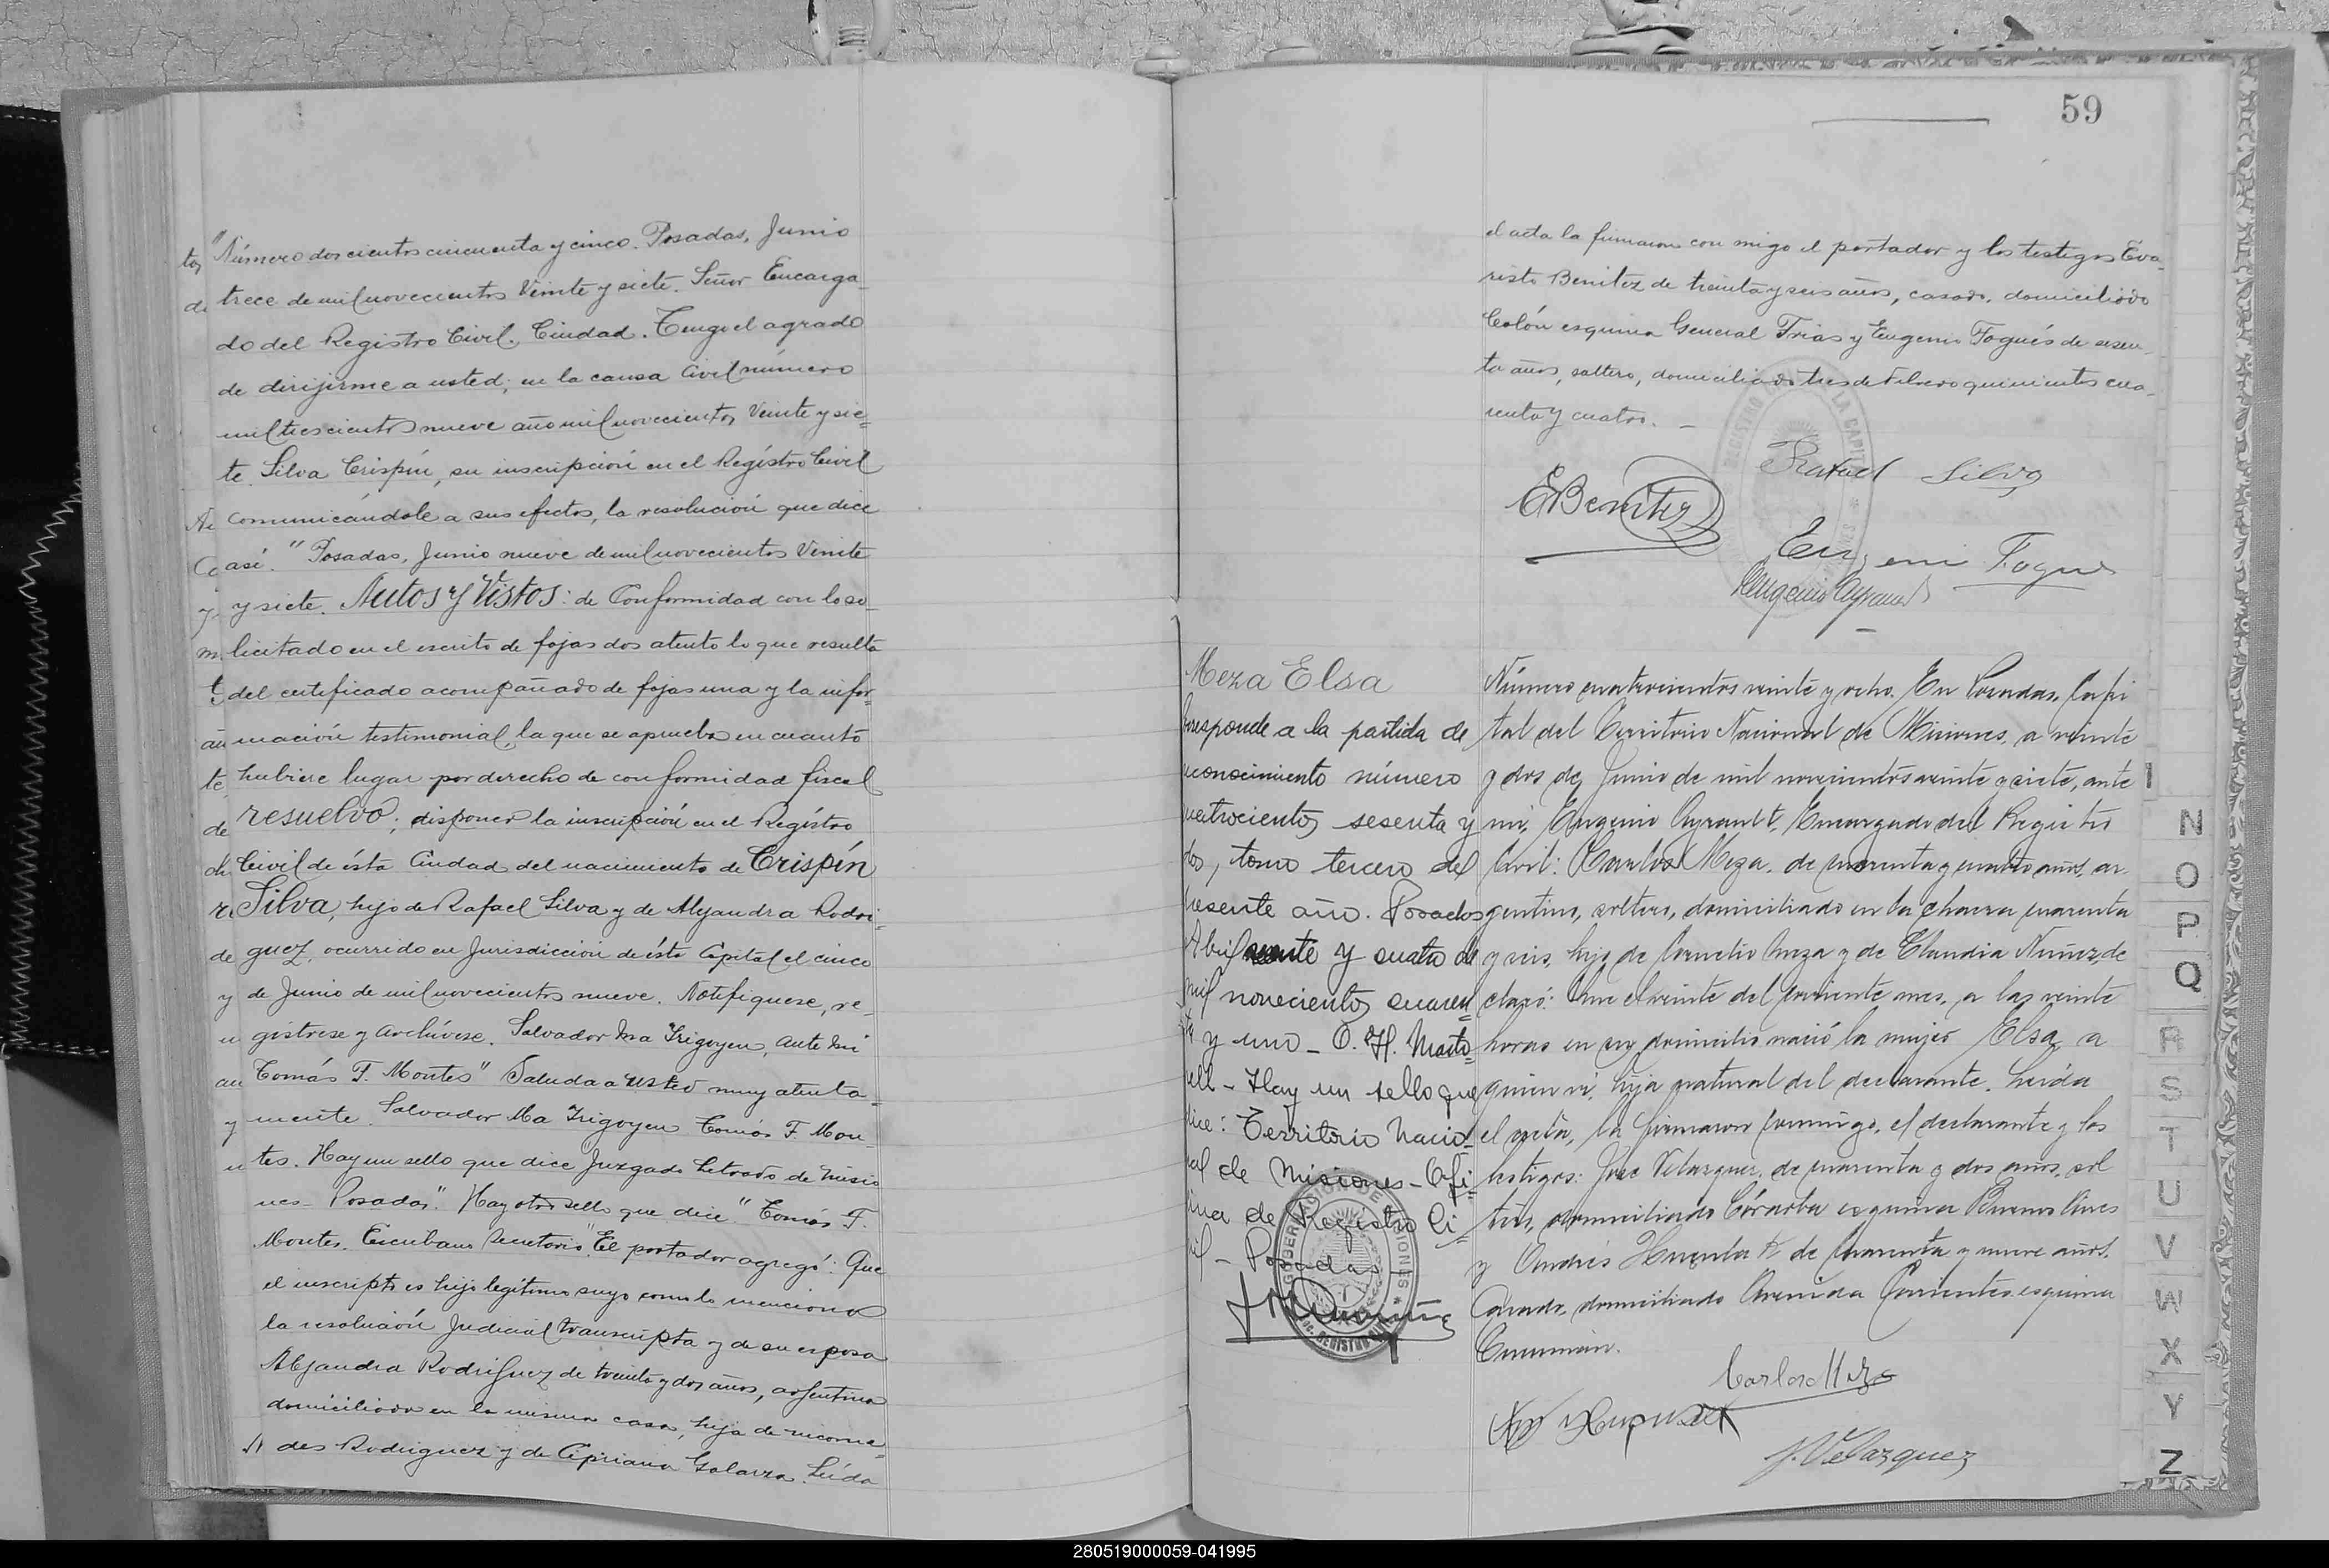 "Número doscientos cincuenta y cinco. Posadas, Junio
trece de mil novecientos Veinte y siete. Señor Encarga
do del Registro Civil. Ciudad. Tengo el agrado
de dirijirme a usted, en la causa Civil número
mil trescientos nueve año mil novecientos Veinte y sie=
te Silva Crispín, su inscripción en el Registro Civil
Comunicándole a sus efectos, la resolución que dice
así. "Posadas, Junio nueve de mil novecientos Veinte
y siete. Autos y Vistos: de Conformidad con lo so-
licitado en el escrito de fojas dos atento lo que resulta
del certificado acompañado de fojas una y la infor-
mación testimonial, la que se aprueba en cuanto
hubiere lugar por derecho de conformidad fiscal
resuelvo; disponer la inscripción en el Registro
Civil de ésta Ciudad del nacimiento de Crispín
Silva, hijo de Rafael Silva y de Alejandra Rodri-
guez, ocurrido en Jurisdicción de ésta Capital el cinco
de Junio de mil novecientos nueve. Notifiquese, re-
gistrese y archívese. Salvador Ma Irigoyen, ante mi
Tomás F. Montes" Saluda a usted muy atenta=
mente. Salvador Ma Irigoyen Tomás F. Mon-
tes. Hay un sello que dice Juzgado Letrado de Misio
nes- Posadas". Hay otro sello que dice "Tomás F.
Montes. Escribano Secretario". El portador agregó: Que
el inscripto es hijo legítimo suyo como lo menciona
la resolución Judicial transcripta y de su esposa
Alejandra Rodriguez de treinta y dos años, argentina
domiciliada en la misma casa, hija de
des Rodriguez y de Cipriana Galarza. Leída
59
el acta la firmaron con migo el portador y los testigos Eva-
risto Benitez de treinta y seis años, casado, domiciliado
Colón esquina General Frias y Eugenio Fogués de sesen-
ta años, soltero, domiciliado tres de Febrero quinientos cua-
renta y cuatro. -
Rafael Silva
EBenitez
Eugeni Fogues
Eugenio Ayrault
Meza Elsa
rresponde a la partida de
conocimiento número
uatrocientos sesenta y
dos, tomo tercero del
resente año. Posadas
Abril veinte y cuatro de
mil novecientos cuaren=
ta y uno - O. H. Marto=
rell - Hay un sello que
dice: Territorio Nacio=
nal de Misiones - Ofi=
cina de Registro Ci=
vil - Posadas -
GOBERNACION DE MISIONES
Número cuatrocientos veinte y ocho. En Posadas, Capi
tal del Territorio Nacional de Misiones, a veinte
y dos de Junio de mil novecientos veinte y siete, ante
mi, Eugenio Ayrault, Encargado del Registro
Civil: Carlos Meza, de cuarenta y cuatro años, ar-
gentino, soltero, domiciliado en la chacra cuarenta
y seis, hijo de Cornelio Meza y de Claudia Nuñez, de
claró: Que el veinte del corriente mes, a las veinte
horas en su domicilio nació la mujer Elsa, a
quien vi, hija natural del declarante. Leída
el acta, la firmaron conmigo, el declarante y los
testigos: José Velazquez, de cuarenta y dos años, sol
tero, domiciliado Córdoba esquina Buenos Aires
y Andrés de cuarenta y nueve años,
casado, domiciliado Avenida Corrientes esquina
Tucumán.
Carlos Meza
J. Velazquez
N
O
P
Q
R
S
T
U
V
W
X
Y
Z
280519000059-041995